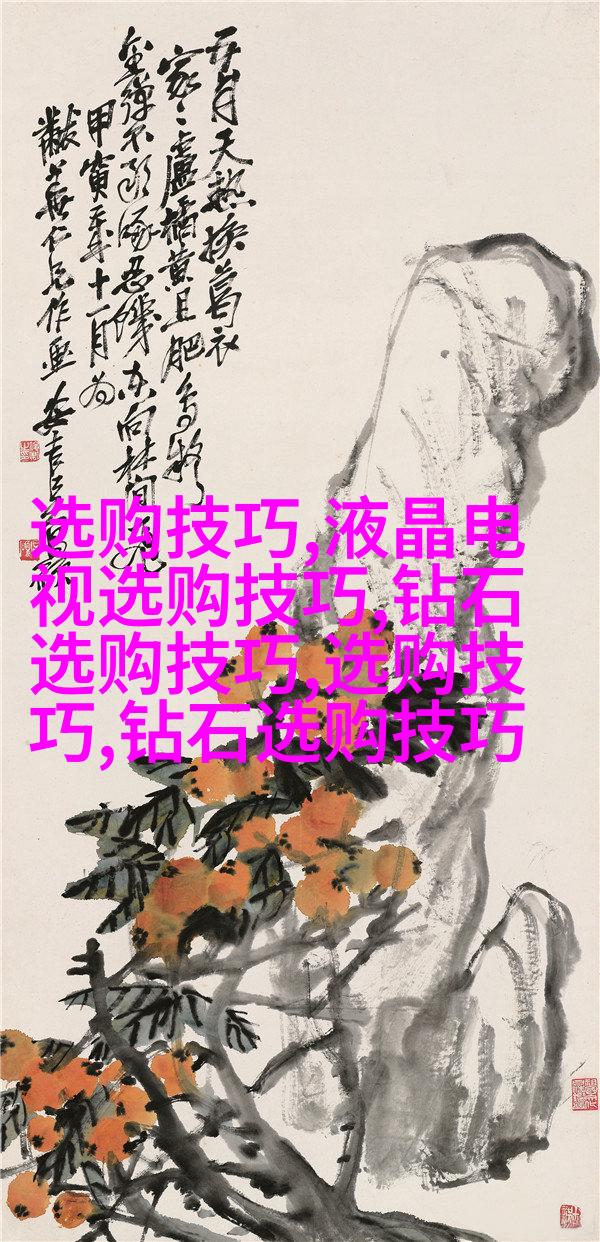 五月天熱換葛衣
家〻盧橘黃且肥鳥疑
金彈不敢啄忍饑東向林間飛
甲寅年十一月為
仁兄作畫 安吉吳昌碩
选购技巧,液晶电
视选购技巧,钻石
选购技巧,选购技
巧,钻石选购技巧